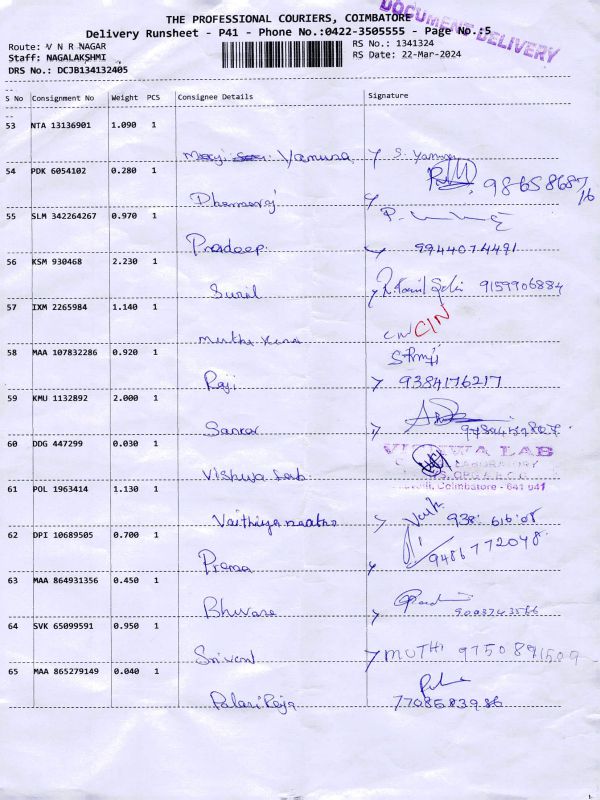 THE PROFESSIONAL COURIERS, COIMBATORE
DOCUMENT DELIVERY
Delivery Runsheet - P41 - Phone No.:0422-3505555 - Page No.:5
Route: V N R NAGAR
RS No.: 1341324
Staff: NAGALAKSHMI
RS Date: 22-Mar-2024
DRS No.: DCJB134132405
S No Consignment No Weight PCS Consignee Details Signature
53 NTA 13136901 1.090 1
Yamuna S. Yamuna
54 PDK 6054102 0.280 1
Dhanaraj
55 SLM 342264267 0.970 1
Pradeep 9944074491
56 KSM 930468 2.230 1
Sunil 9159906884
57 IXM 2265984 1.140 1
CIN CIN
58 MAA 107832286 0.920 1
Raji 9384176217
59 KMU 1132892 2.000 1
Sankar
60 DDG 447299 0.030 1
VISHWA LAB
LABORATORY
Vishwa Lab
Coimbatore - 641 041
61 POL 1963414 1.130 1
62 DPI 10689505 0.700 1
Prema 9486772048
63 MAA 864931356 0.450 1
64 SVK 65099591 0.950 1
MUTHI 9750891509
65 MAA 865279149 0.040 1
Palani Raja 7708583986